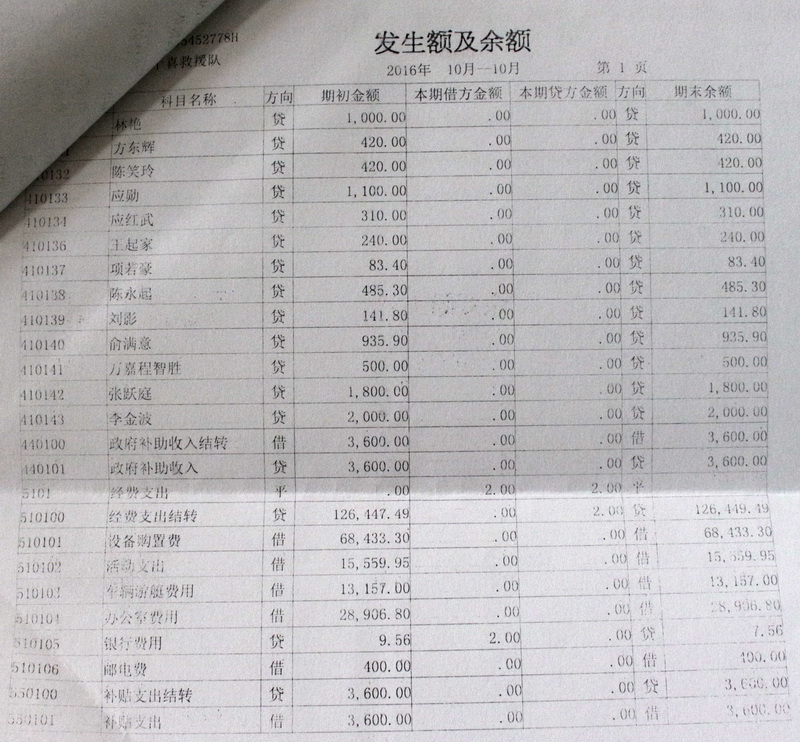 5452778H
喜救援队
发生额及余额
2016年 10月—10月 第 1 页
科目名称 方向 期初金额 本期借方金额 本期贷方金额 方向 期末余额
林艳 贷 1,000.00 .00 .00 贷 1,000.00
方东辉 贷 420.00 .00 .00 贷 420.00
410132 陈笑玲 贷 420.00 .00 .00 贷 420.00
410133 应勋 贷 1,100.00 .00 .00 贷 1,100.00
410134 应红武 贷 310.00 .00 .00 贷 310.00
410136 王起家 贷 240.00 .00 .00 贷 240.00
410137 项若豪 贷 83.40 .00 .00 贷 83.40
410138 陈永超 贷 485.30 .00 .00 贷 485.30
410139 刘影 贷 141.80 .00 .00 贷 141.80
410140 俞满意 贷 935.90 .00 .00 贷 935.90
410141 万嘉程智胜 贷 500.00 .00 .00 贷 500.00
410142 张跃庭 贷 1,800.00 .00 .00 贷 1,800.00
410143 李金波 贷 2,000.00 .00 .00 贷 2,000.00
440100 政府补助收入结转 借 3,600.00 .00 .00 借 3,600.00
440101 政府补助收入 贷 3,600.00 .00 .00 贷 3,600.00
5101 经费支出 平 .00 2.00 2.00 平
510100 经费支出结转 贷 126,447.49 .00 2.00 贷 126,449.49
510101 设备购置费 借 68,433.30 .00 .00 借 68,433.30
510102 活动支出 借 15,559.95 .00 .00 借 15,559.95
510103 车辆游艇费用 借 13,157.00 .00 .00 借 13,157.00
510104 办公室费用 借 28,906.80 .00 .00 借 28,906.80
510105 银行费用 贷 9.56 2.00 .00 贷 7.56
510106 邮电费 借 400.00 .00 .00 借 400.00
550100 补贴支出结转 贷 3,600.00 .00 .00 贷 3,600.00
550101 补贴支出 借 3,600.00 .00 .00 借 3,600.00